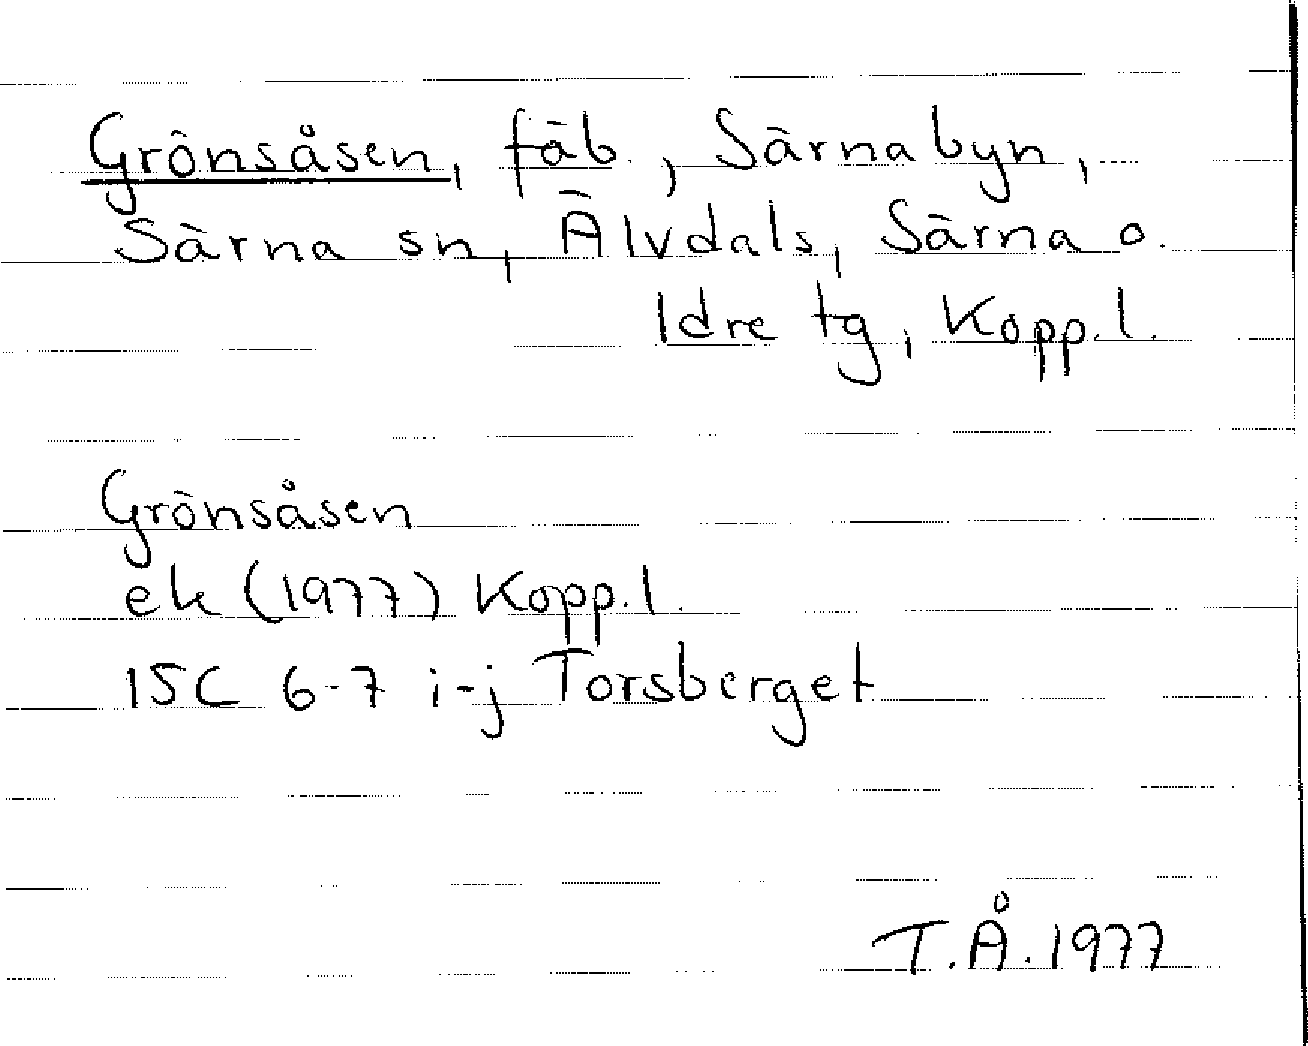 Grönsåsen, fäb., Särnabyn,
Särna sn, Älvdals, Särna o.
Idre tg, Kopp. l.
Grönsåsen
ek (1977) Kopp. l.
15C 6-7 i-j Torsberget
T.Å. 1977